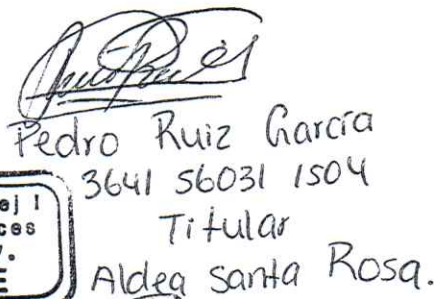 Pedro Ruiz García
3641 56031 1504
Titular
Aldea Santa Rosa.